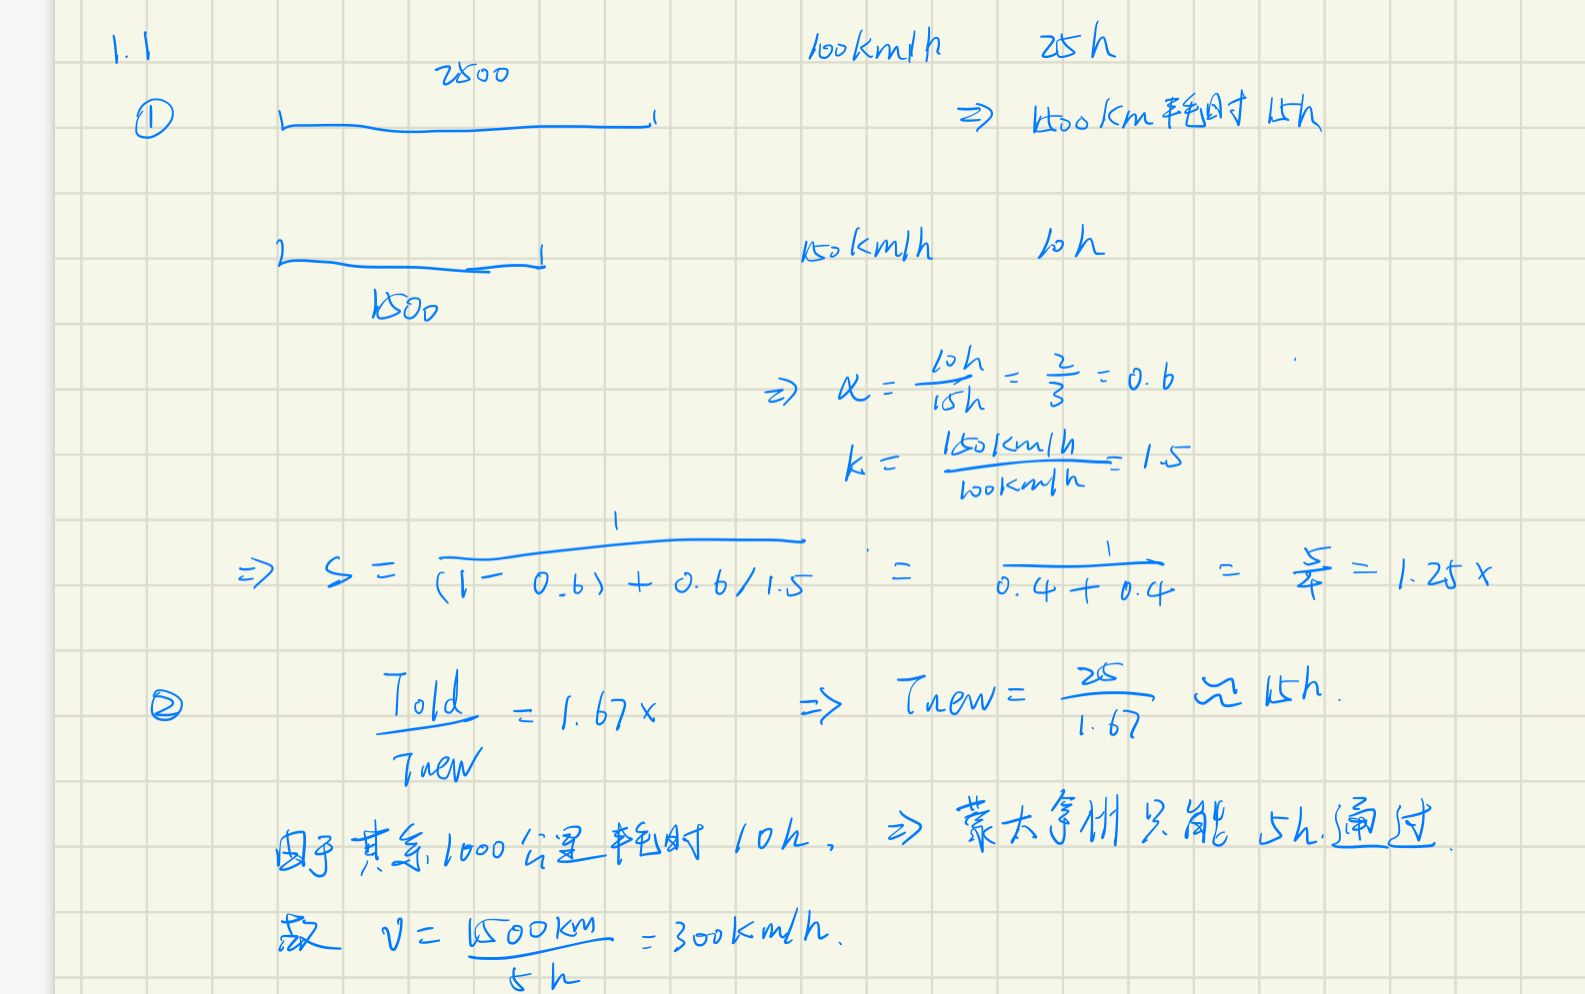 1.1
2500
100km/h 25h
①
⇒ 1500km 耗时 15h
150km/h 10h
1500
⇒ α = 10h/15h = 2/3 = 0.6
k = 150km/h / 100km/h = 1.5
⇒ S = 1/((1 - 0.6) + 0.6/1.5) = 1/(0.4 + 0.4) = 5/4 = 1.25x
② Told/Tnew = 1.67x ⇒ Tnew = 25/1.67 ≈ 15h.
由于其余1000公里耗时10h, ⇒ 蒙大拿州只能5h.通过.
故 v = 1500km/5h = 300km/h.